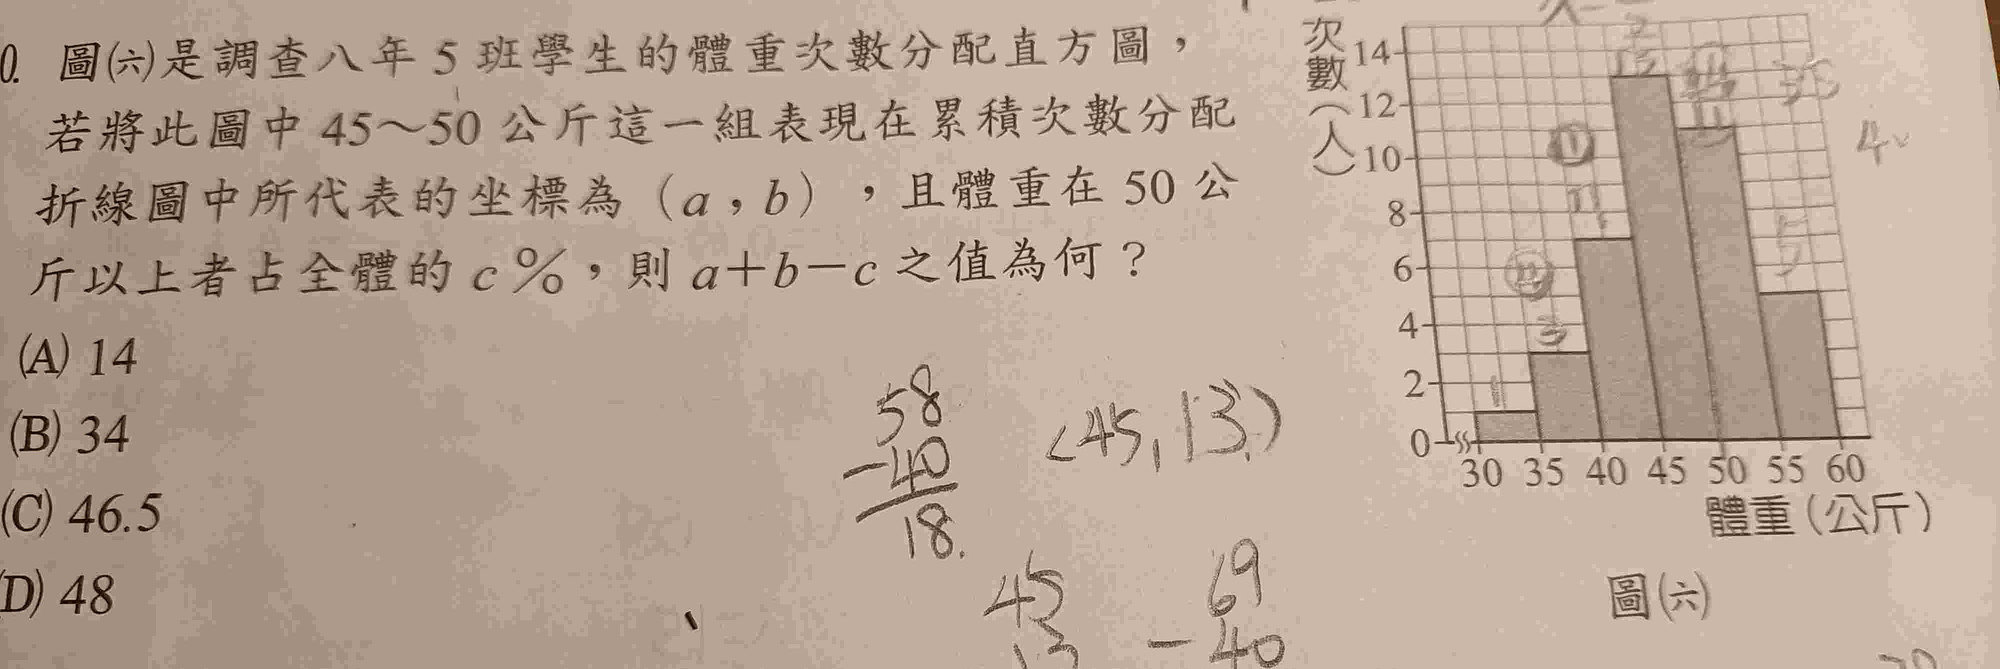 0. 圖㈥是調查八年 5 班學生的體重次數分配直方圖，
若將此圖中 45～50 公斤這一組表現在累積次數分配
折線圖中所代表的坐標為（a，b），且體重在 50 公
斤以上者占全體的 c％，則 a＋b－c 之值為何？
(A) 14
(B) 34
(C) 46.5
(D) 48
58
-40
18.
(45,13)
45
13
69
-40
次數（人）
14
12
10
8
6
4
2
0
1
3
11
5
30 35 40 45 50 55 60
體重（公斤）
圖㈥